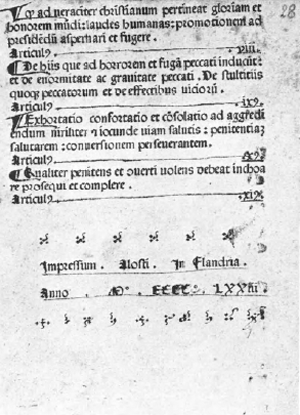 28
Qꝙ ad veraciter christianum pertineat gloriam et
honorem mūdi: laudes humanas: promotionem ad
presidēdū aspernari et fugere.
Articulꝰ viij.
De hijs que ad horrorem et fugā peccati inducūt:
et de enormitate ac gravitate peccati. De stultitiis
quoqꝫ peccatorum et de effectibus vicioꝝ.
Articulꝰ ix.
Exhortatio confortatio et cōsolatio ad aggredi
endum viriliter et iocunde viam salutis: penitentiaꝫ
salutarem: conversionem perseverantem.
Articulꝰ
Qualiter penitens et converti volens debeat inchoa
re prosequi et complere.
Articulꝰ
Impressum. Alosti. In Flandria.
Anno. Mᵒ. CCCCᵒ. LXXiii.